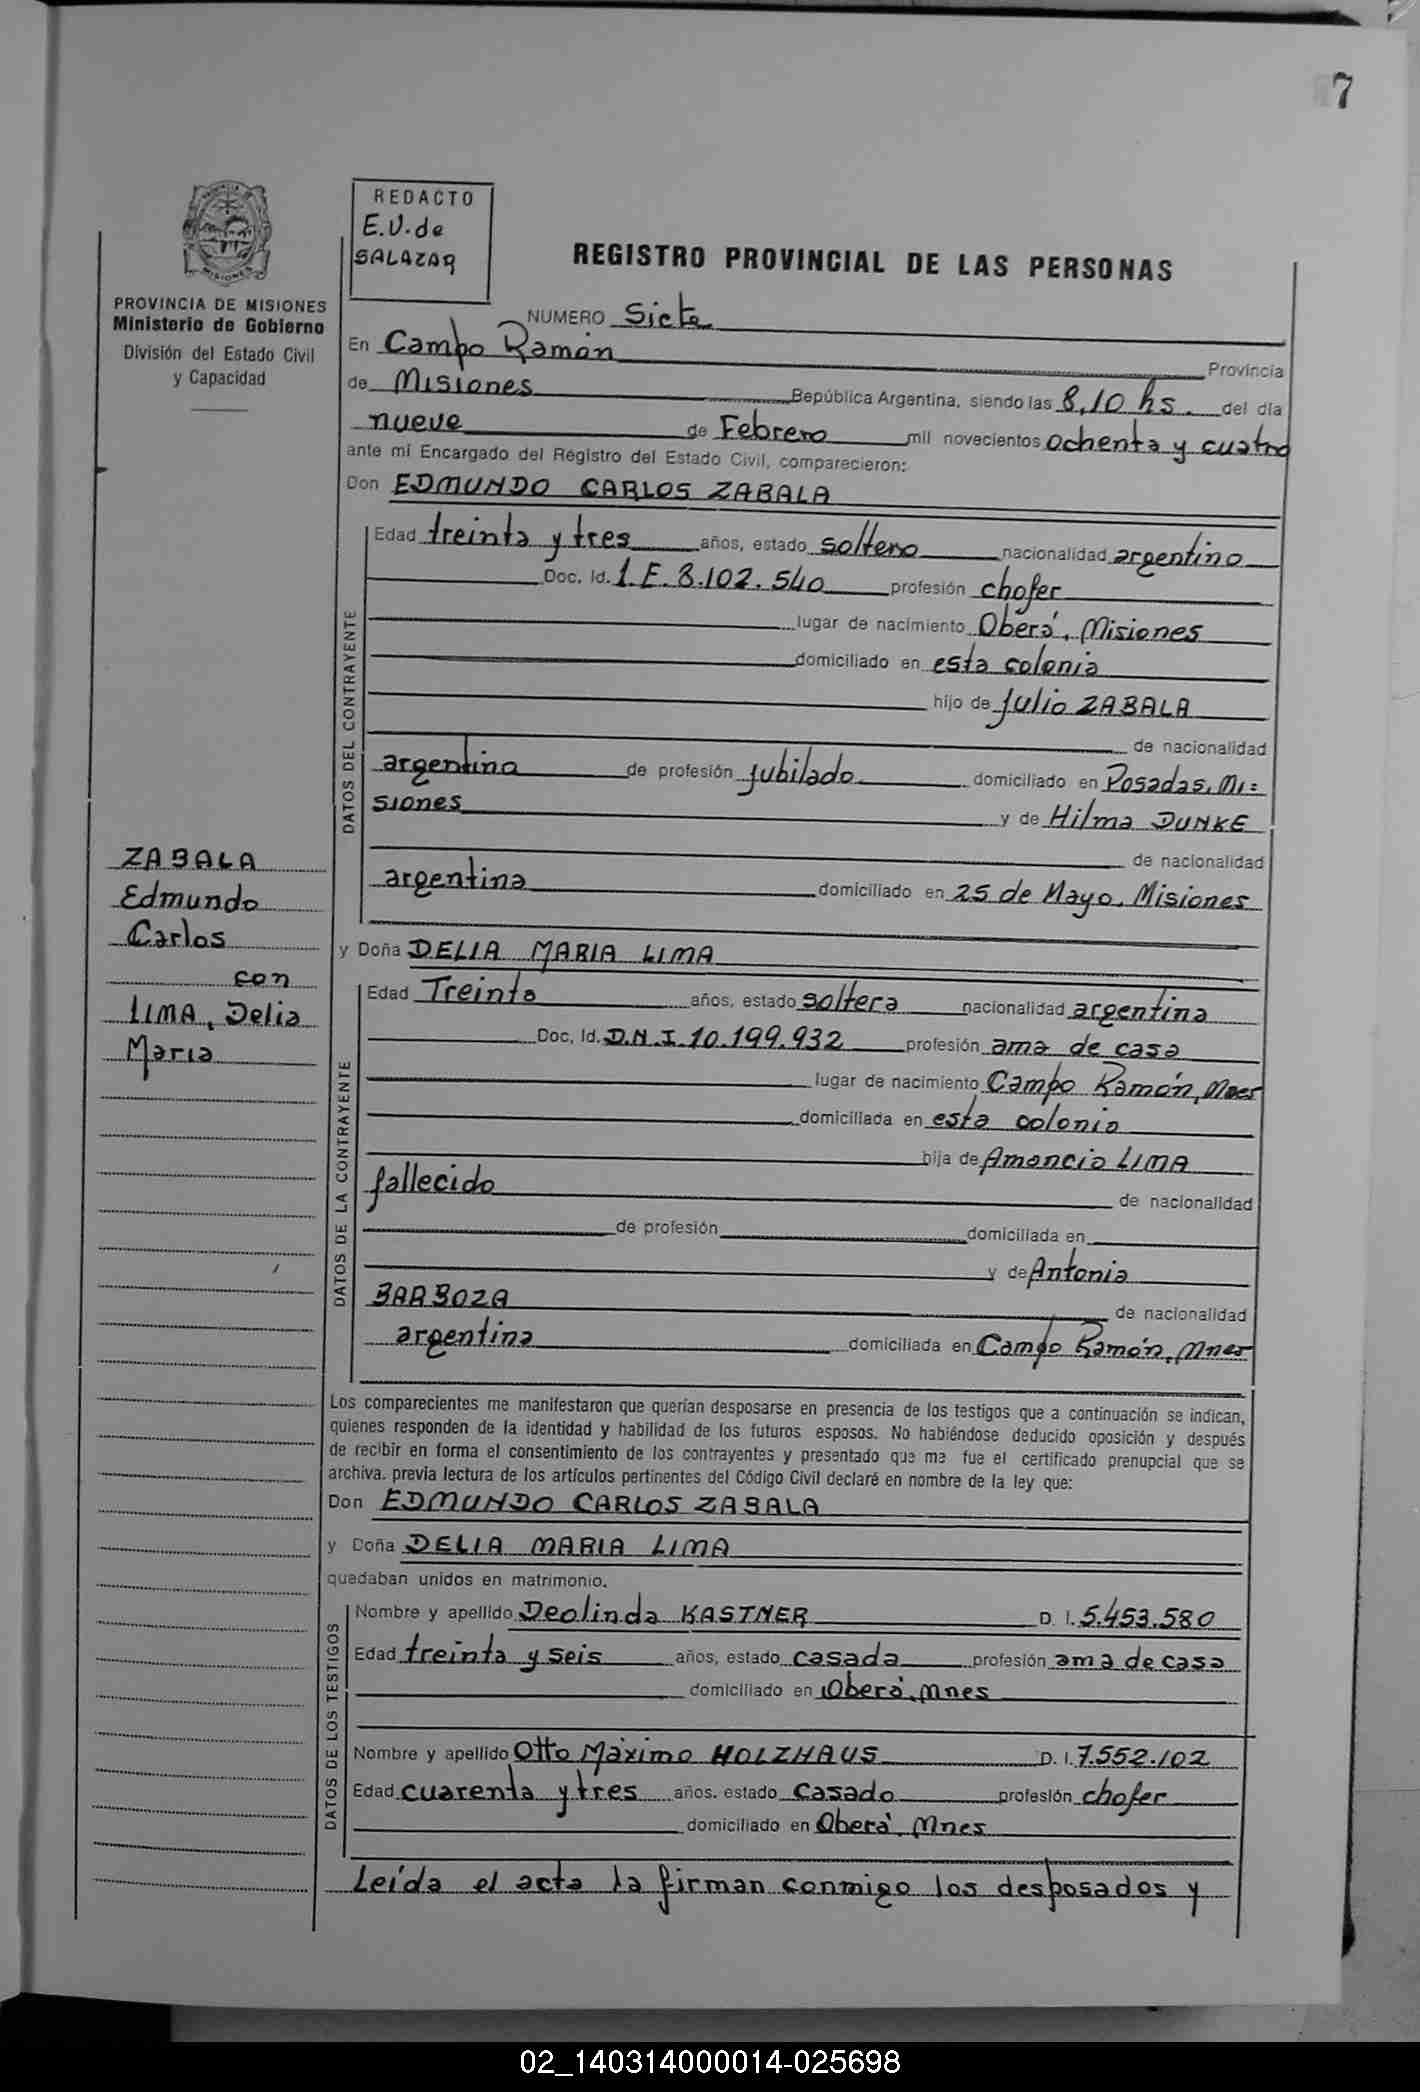 7
REDACTO
E.V. de
SALAZAR
PROVINCIA DE MISIONES
Ministerio de Gobierno
División del Estado Civil
y Capacidad
REGISTRO PROVINCIAL DE LAS PERSONAS
NUMERO Siete
En Campo Ramón Provincia
de Misiones República Argentina, siendo las 8,10 hs. del día
nueve de Febrero mil novecientos ochenta y cuatro
ante mí Encargado del Registro del Estado Civil, comparecieron:
Don EDMUNDO CARLOS ZABALA
DATOS DEL CONTRAYENTE
Edad treinta y tres años, estado soltero nacionalidad argentino
Doc. Id. L.E. 8.102.540 profesión chofer
lugar de nacimiento Oberá, Misiones
domiciliado en esta colonia
hijo de Julio ZABALA
de nacionalidad
argentina de profesión jubilado domiciliado en Posadas, Mi=
siones y de Hilma DUNKE
de nacionalidad
argentina domiciliado en 25 de Mayo, Misiones
ZABALA
Edmundo
Carlos
con
LIMA, Delia
Maria
y Doña DELIA MARIA LIMA
DATOS DE LA CONTRAYENTE
Edad Treinta años, estado soltera nacionalidad argentina
Doc. Id. D.N.I. 10.199.932 profesión ama de casa
lugar de nacimiento Campo Ramón, Mnes
domiciliada en esta colonia
hija de Amancio LIMA
fallecido de nacionalidad
de profesión domiciliada en
y de Antonia
BARBOZA de nacionalidad
argentina domiciliada en Campo Ramón, Mnes
Los comparecientes me manifestaron que querían desposarse en presencia de los testigos que a continuación se indican,
quienes responden de la identidad y habilidad de los futuros esposos. No habiéndose deducido oposición y después
de recibir en forma el consentimiento de los contrayentes y presentado que me fue el certificado prenupcial que se
archiva. previa lectura de los artículos pertinentes del Código Civil declaré en nombre de la ley que:
Don EDMUNDO CARLOS ZABALA
y Doña DELIA MARIA LIMA
quedaban unidos en matrimonio.
DATOS DE LOS TESTIGOS
Nombre y apellido Deolinda KASTNER D. I. 5.453.580
Edad treinta y seis años, estado casada profesión ama de casa
domiciliado en Oberá, Mnes
Nombre y apellido Otto Máximo HOLZHAUS D. I. 7.552.102
Edad cuarenta y tres años. estado casado profesión chofer
domiciliado en Oberá, Mnes
Leída el acta la firman conmigo los desposados y
02_140314000014-025698